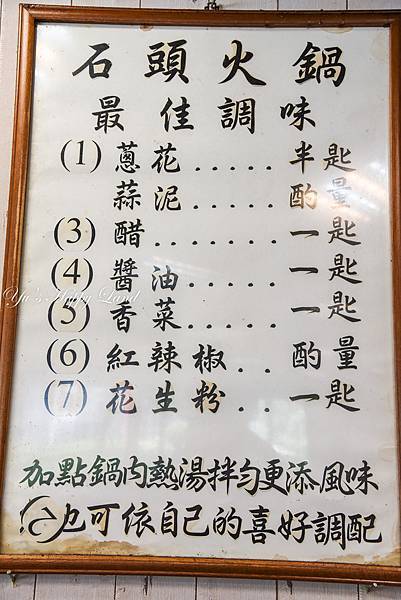 石頭火鍋
最佳調味
(1) 蔥花..... 半匙
蒜泥..... 酌量
(3) 醋....... 一匙
(4) 醬油..... 一匙
(5) 香菜..... 一匙
(6) 紅辣椒.. 酌量
(7) 花生粉.. 一匙
加點鍋內熱湯拌勻更添風味
也可依自己的喜好調配
Yu's Happy Land